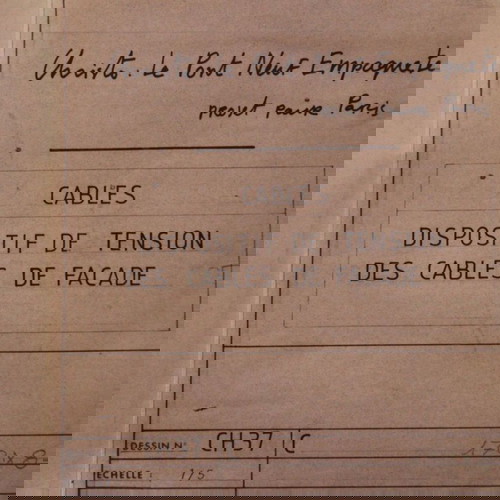 Christo. Le Pont Neuf Empaqueté
projet pour Paris
CABLES
DISPOSITIF DE TENSION
DES CABLES DE FACADE
DESSIN N° CH37 1C
ECHELLE : 1/5